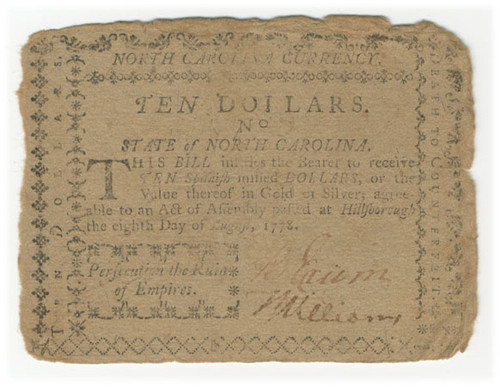 NORTH CAROLINA CURRENCY.
TEN DOLLARS.
No
STATE of NORTH CAROLINA.
THIS BILL intitles the Bearer to receive
TEN Spanish milled DOLLARS, or the
Value thereof in Gold or Silver, agree-
able to an Act of Assembly passed at Hillsborough
the eighth Day of August, 1778.
Persecution the Ruin
of Empires.
Williams
TEN DOLLARS.
DEATH TO COUNTERFEIT